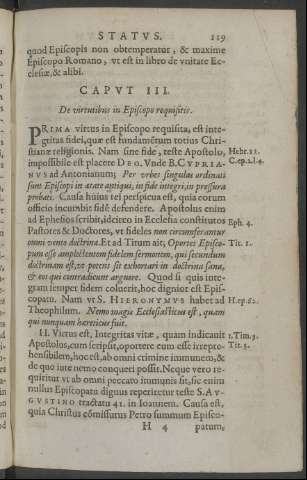 STATVS. 119
quod Episcopis non obtemperatur, & maxime
Episcopo Romano, vt est in libro de vnitate Ec-
clesiæ, & alibi.
CAPVT III.
De virtutibus in Episcopo requisitis.
PRIMA virtus in Episcopo requisita, est inte-
gritas fidei, quæ est fundamẽtum totius Chri-
stianæ religionis. Nam sine fide, teste Apostolo, Hebr. 11.
impossibile est placere DEO. Vnde B. CYPRIA- C. ep. 2. l. 4.
NVS ad Antonianum; Per vrbes singulas ordinati
sunt Episcopi in ætate antiqui, in fide integri, in pressura
probati. Causa huius rei perspicua est, quia eorum
officio incumbit fidẽ defendere. Apostolus enim
ad Ephesios scribit, ideirco in Ecclesia constitutos
Pastores & Doctores, vt fideles non circumferantur Eph. 4.
omni vento doctrinæ. Et ad Titum ait; Oportet Episco- Tit. 1.
pum esse amplectentem fidelem sermonem, qui secundum
doctrinam est, vt potens sit exhortari in doctrina sana,
& eos qui contradicunt arguere. Quod si quis inte-
gram semper fidem coluerit, hoc dignior est Epis-
copatu. Nam vt S. HIERONYMVS habet ad H. ep. 62.
Theophilum. Nemo magis Ecclesiasticus est, quam
qui nunquam hæreticus fuit.
II. Virtus est, Integritas vitæ, quam indicauit 1. Tim. 3.
Apostolus, cum scripsit, oportere eum esse irrepre- Tit. 1.
hensibilem, hoc est, ab omni crimine immunem, &
de quo iure nemo conqueri possit. Neque vero re-
quiritur vt ab omni peccato immunis sit, sic enim
nullus Episcopatu dignus reperiretur teste S. AV-
GVSTINO tractatu 41. in Ioannem. Causa est,
quia Christus cõmissurus Petro summum Episco-
H 4 patum,